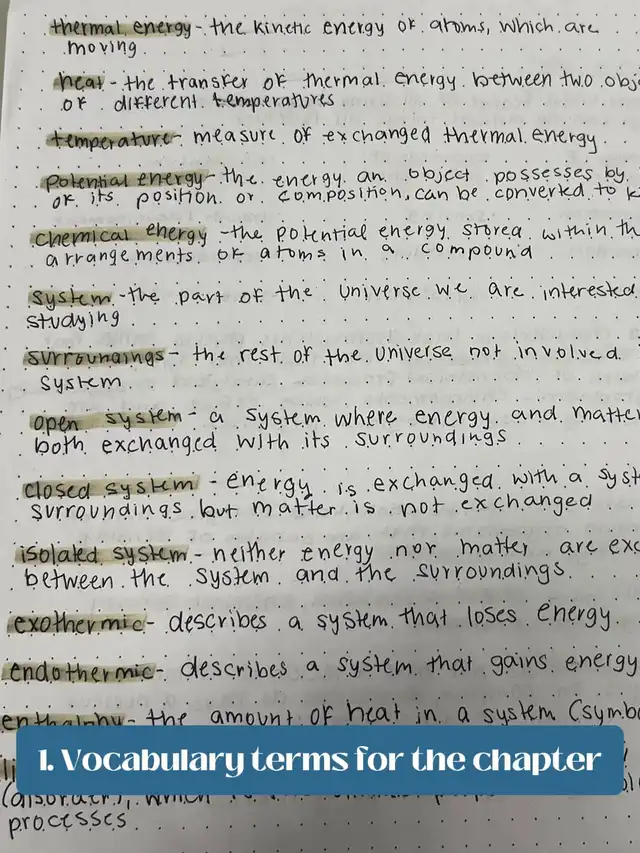 thermal energy - the kinetic energy of atoms, which are
moving
heat - the transfer of thermal energy between two obj
of different temperatures
temperature - measure of exchanged thermal energy
potential energy - the energy an object possesses by
of its position or composition, can be converted to k
chemical energy - the potential energy stored within th
arrangements of atoms in a compound
system - the part of the universe we are interested
studying
surroundings - the rest of the universe not involved
system
open system - a system where energy and matter
both exchanged with its surroundings
closed system - energy is exchanged with a syst
surroundings but matter is not exchanged
isolated system - neither energy nor matter are exc
between the system and the surroundings
exothermic - describes a system that loses energy
endothermic - describes a system that gains energy
enthalphy - the amount of heat in a system (symbo
1. Vocabulary terms for the chapter
(disorder), which
processes